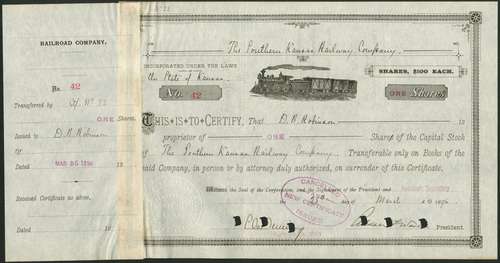 RAILROAD COMPANY.
No. 42
Transferred by
ONE Shares.
Issued to D. R. Robinson
Dated MAR 25 1896 18
Received Certificate as above,
Dated 18
The Southern Kansas Railway Company.
INCORPORATED UNDER THE LAWS
the State of Kansas.
SHARES, $100 EACH.
No. 42
ONE Shares
THIS IS TO CERTIFY, That D. R. Robinson is
proprietor of ONE Shares of the Capital Stock
of The Southern Kansas Railway Company. Transferable only on Books of the
said Company, in person or by attorney duly authorized, on surrender of this Certificate.
Witness the Seal of the Corporation, and Signatures of the President and Assistant Secretary
CANCELLED
NEW CERTIFICATE
ISSUED
March 1896
President